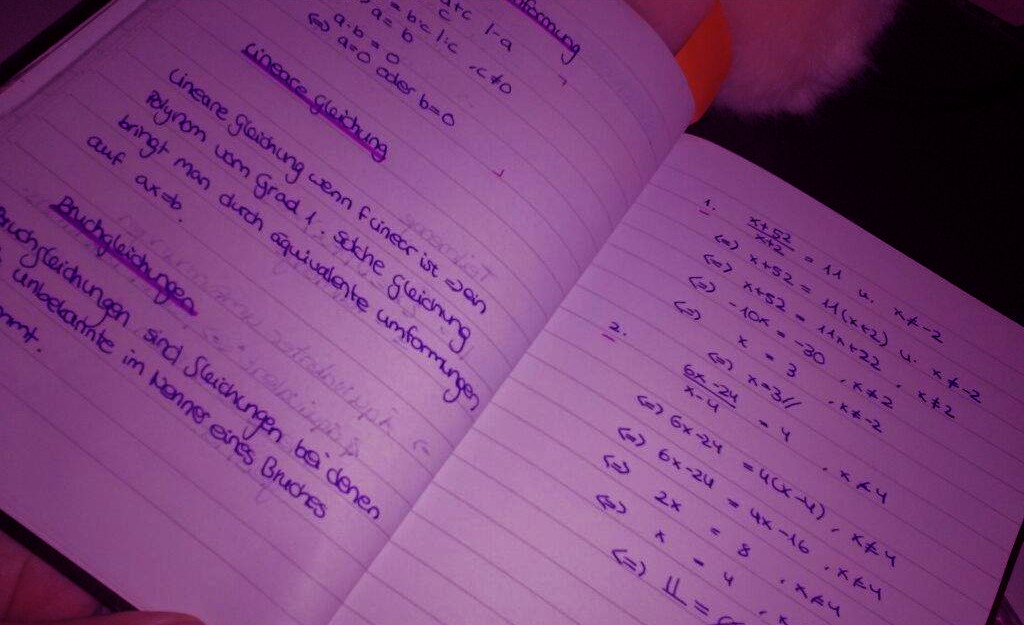 umformung
a+c |-a
c
= b·c |:c , c≠0
a = b
a·b = 0
<=> a=0 oder b=0
Lineare gleichung
Lineare gleichung wenn f linear ist => ein
Polynom vom Grad 1. Solche gleichung
bringt man durch äquivalente umformungen
auf ax=b.
Bruchgleichungen
Bruchgleichungen sind gleichungen bei denen
unbekannte im Nenner eines Bruches
mmt.
1. x+52/x+2 = 11 u. x≠-2
<=> x+52 = 11(x+2) u. x≠-2
<=> x+52 = 11x+22 , x≠2
<=> -10x = -30 , x≠2
<=> x = 3 , x≠-2
<=> x=3//
2. 6x-24/x-4 = 4 , x≠4
<=> 6x-24 = 4(x-4) , x≠4
<=> 6x-24 = 4x-16 , x≠4
<=> 2x = 8 , x≠4
<=> x = 4 , x
<=> 𝕃 =